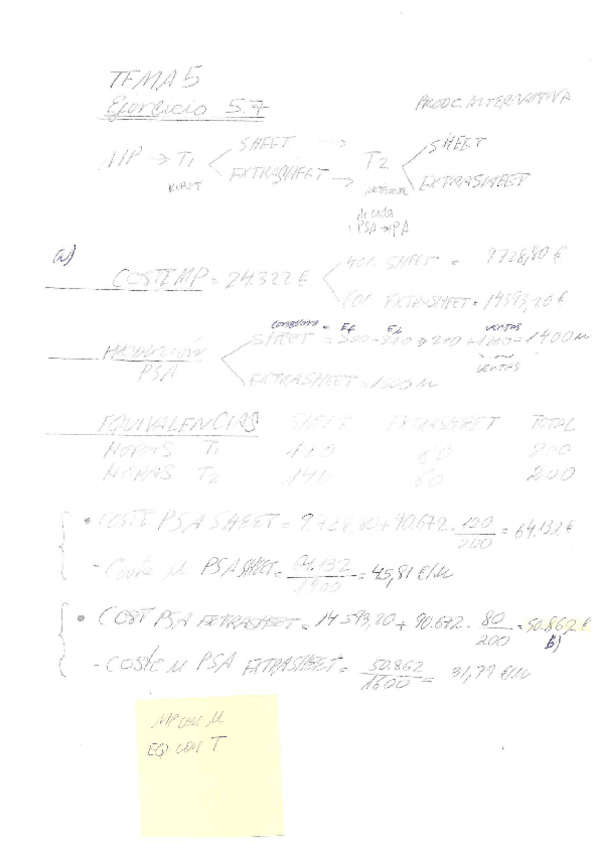 TEMA 5
Ejercicio 5.7
PRODC. ALTERNATIVA
MP → T1 SHEET → T2 SHEET
EXTRASHEET → EXTRASHEET
de cada
1 PSA → 1 PA
a)
COSTE MP = 24.322 €
40% SHEET = 9728,80 €
60% EXTRASHEET = 14593,20 €
PRODUCCIÓN
PSA
VENTAS
= 1400 u
VENTAS
EXTRASHEET = 1600 u
EQUIVALENCIAS SHEET EXTRASHEET TOTAL
HORAS T1 120 80 200
HORAS T2 140 60 200
• COSTE PSA SHEET = 9.728,80 + 90.672 · 120/200 = 64.132 €
- Coste u PSA SHEET = 64.132/1400 = 45,81 €/u
• COST PSA EXTRASHEET = 14.593,20 + 90.672 · 80/200 = 50.862 €
b)
- COSTE u PSA EXTRASHEET = 50.862/1600 = 31,79 €/u
MP con U
EQ con T